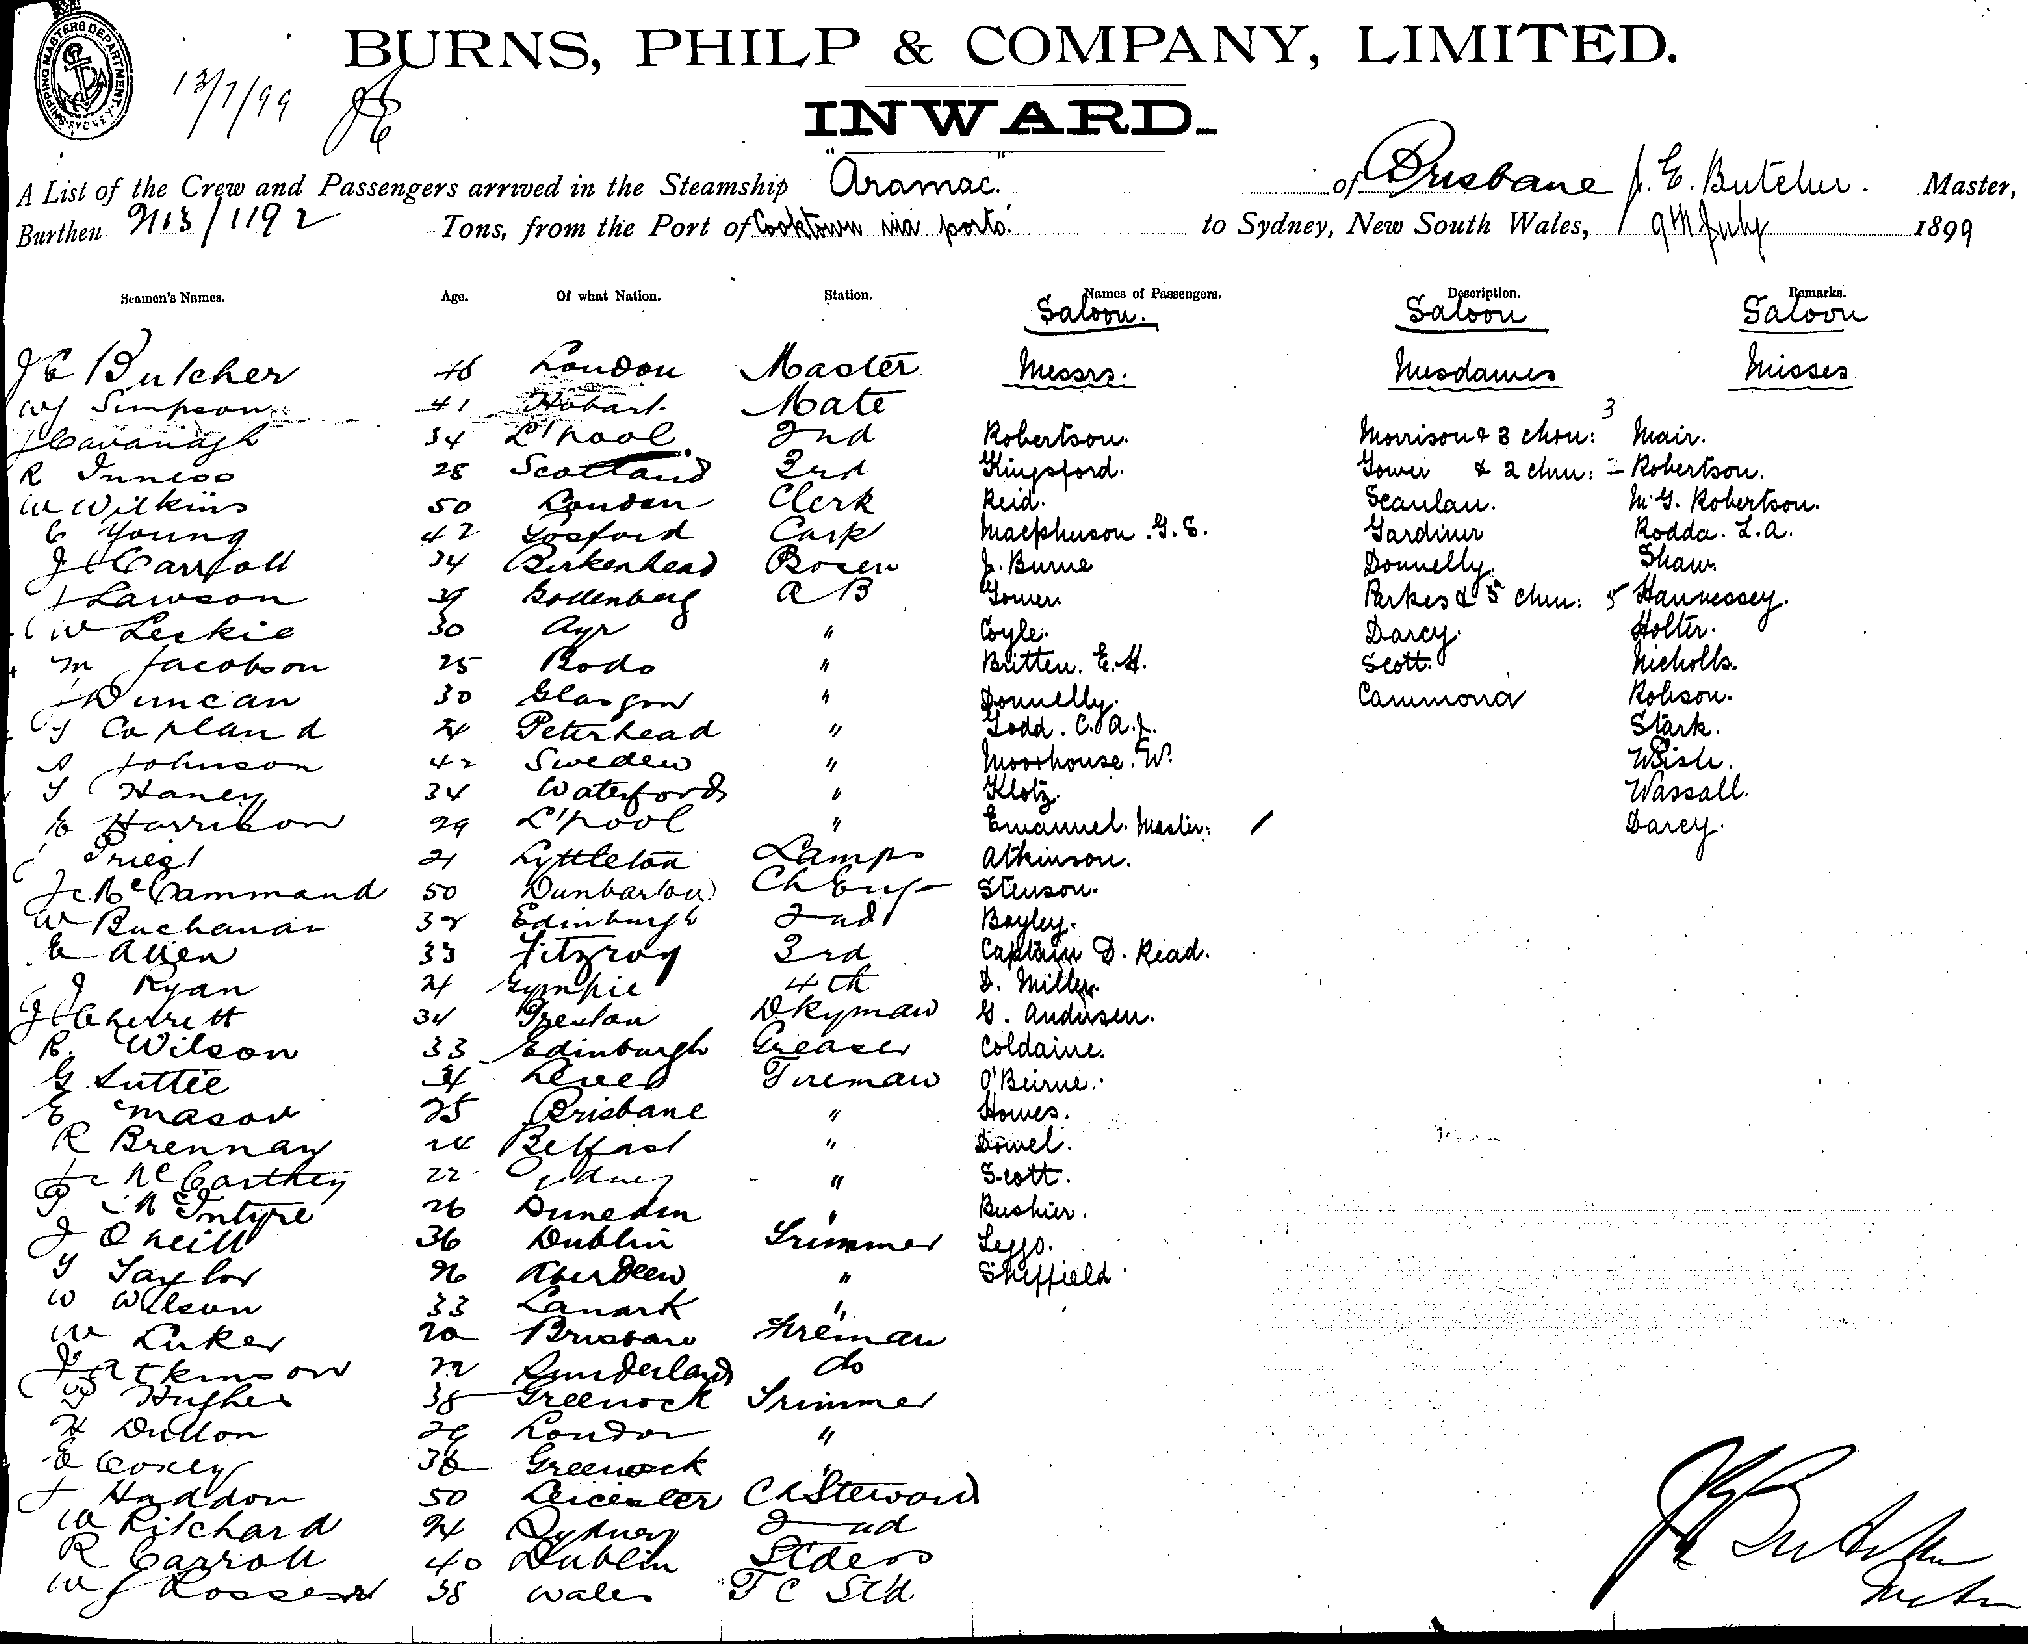 SHIPPING MASTERS DEPARTMENT SYDNEY
13/7/99 JE
BURNS, PHILP & COMPANY, LIMITED.
INWARD.
A List of the Crew and Passengers arrived in the Steamship "Aramac." of Brisbane J. E. Butcher. Master,
Burthen 2113/1192 Tons, from the Port of Cooktown via ports. to Sydney, New South Wales, 9th July 1899
Seamen's Names. Age. Of what Nation. Station. Names of Passengers. Description. Remarks.
Saloon. Saloon Saloon
J E Butcher 48 London Master Messrs. Mesdames Misses
W J Simpson 41 Hobart Mate
J Cavanagh 34 L'pool 2nd Robertson. Morrison & 3 chn: 3 Mair.
R Inness 28 Scotland 3rd Kingsford. Gower & 2 chn: 2 Robertson.
W Wilkins 50 London Clerk Reid. Scanlan. M. G. Robertson.
C Young 42 Gosford Carp Macpherson. G. S. Gardiner Rodda. L. A.
J Carroll 34 Birkenhead Bosen J. Burne Donnelly. Shaw.
J Lawson 39 Gottenberg A B Gower. Parkes & 5 chn: 5 Hannessey.
W Leckie 30 Ayr " Coyle. Darcy. Holter.
M Jacobson 25 Bodo " Britten. E. H. Scott. Nicholls.
J Duncan 30 Glasgow " Donnelly. Cammond Robson.
J Copland 24 Peterhead " Todd. C. A. J. Stark.
A Johnson 42 Sweden " Moorhouse. W. Wish.
J Haney 34 Waterford " Klotz. Wassall.
E Harrison 29 L'pool " Emanuel. Master. / Darcy.
Priest 21 Lyttleton Lamps Atkinson.
J McCammand 50 Dunbarton Ch Eng Stenson.
W Buchanan 38 Edinburgh 2nd Bayley.
E Allen 33 Fitzroy 3rd Captain D. Read.
J Ryan 24 Gympie 4th D. Miller.
G Cherritt 34 Preston Dkyman G. Andersen.
R. Wilson 33 Edinburgh Greaser Coldaine.
G Suttie 34 Leven Fireman O'Beirne.
E Mason 25 Brisbane " Homes.
R Brennan 24 Belfast " Dowel.
J McCarthey 22 Sydney " Scott.
P McIntyre 26 Dunedin " Bushier.
J O'Neill 36 Dublin Trimmer Leggo.
J Taylor 26 Aberdeen " Sheffield
W Wilson 33 Lanark "
W Luker 20 Brisbane Fireman
J Atkinson 22 Sunderland do
W Hughes 38 Greenock Trimmer
H Dutton 29 London "
E Coxey 36 Greenock "
J Haddon 50 Leicester Ch Steward
W Ritchard 24 Sydney 2nd
R Carroll 40 Dublin Stdess
W J Rosser 38 Wales F C Std
J E Butcher
Master